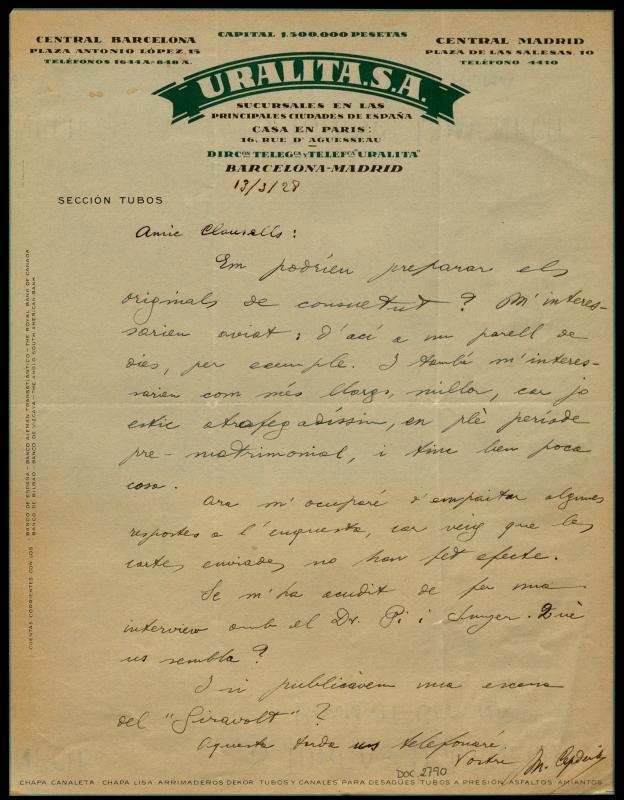 CAPITAL 1.500.000 PESETAS
CENTRAL BARCELONA
PLAZA ANTONIO LÓPEZ, 15
TELÉFONOS 1644 A.-848 A.
CENTRAL MADRID
PLAZA DE LAS SALESAS, 10
TELÉFONO 4410
URALITA, S.A.
SUCURSALES EN LAS
PRINCIPALES CIUDADES DE ESPAÑA
CASA EN PARIS:
16, RUE D'AGUESSEAU
DIRC.on TELEG.ca Y TELEF.ca "URALITA"
BARCELONA-MADRID
13/3/28
SECCIÓN TUBOS
Amic Clausells:
Em podrien preparar els
originals de consuetut? M'interes-
sarien aviat: d'ací a un parell de
dies, per exemple. I també m'interes-
sarien com més llargs, millor, car jo
estic atrafegadíssim, en plè període
pre-matrimonial, i tinc ben poca
cosa.
Ara m'ocuparé d'empaitar algunes
respostes a l'enquesta, car veig que les
cartes enviades no han fet efecte.
Se m'ha acudit de fer una
interview amb el Dr. Pi i Sunyer. Què
us sembla?
I si publicàvem una escena
del "Giravolt"?
Aquesta tarda us telefonaré.
Vostre
DOC. 2790
CUENTAS CORRIENTES CON LOS
BANCO DE ESPAÑA — BANCO ALEMAN TRANSATLANTICO — THE ROYAL BANK OF CANADA
BANCO DE BILBAO — BANCO DE VIZCAYA — THE ANGLO SOUTH AMERICAN BANK
CHAPA CANALETA · CHAPA LISA · ARRIMADEROS DEKOR · TUBOS Y CANALES PARA DESAGÜES TUBOS A PRESIÓN, ASFALTOS, AMIANTOS